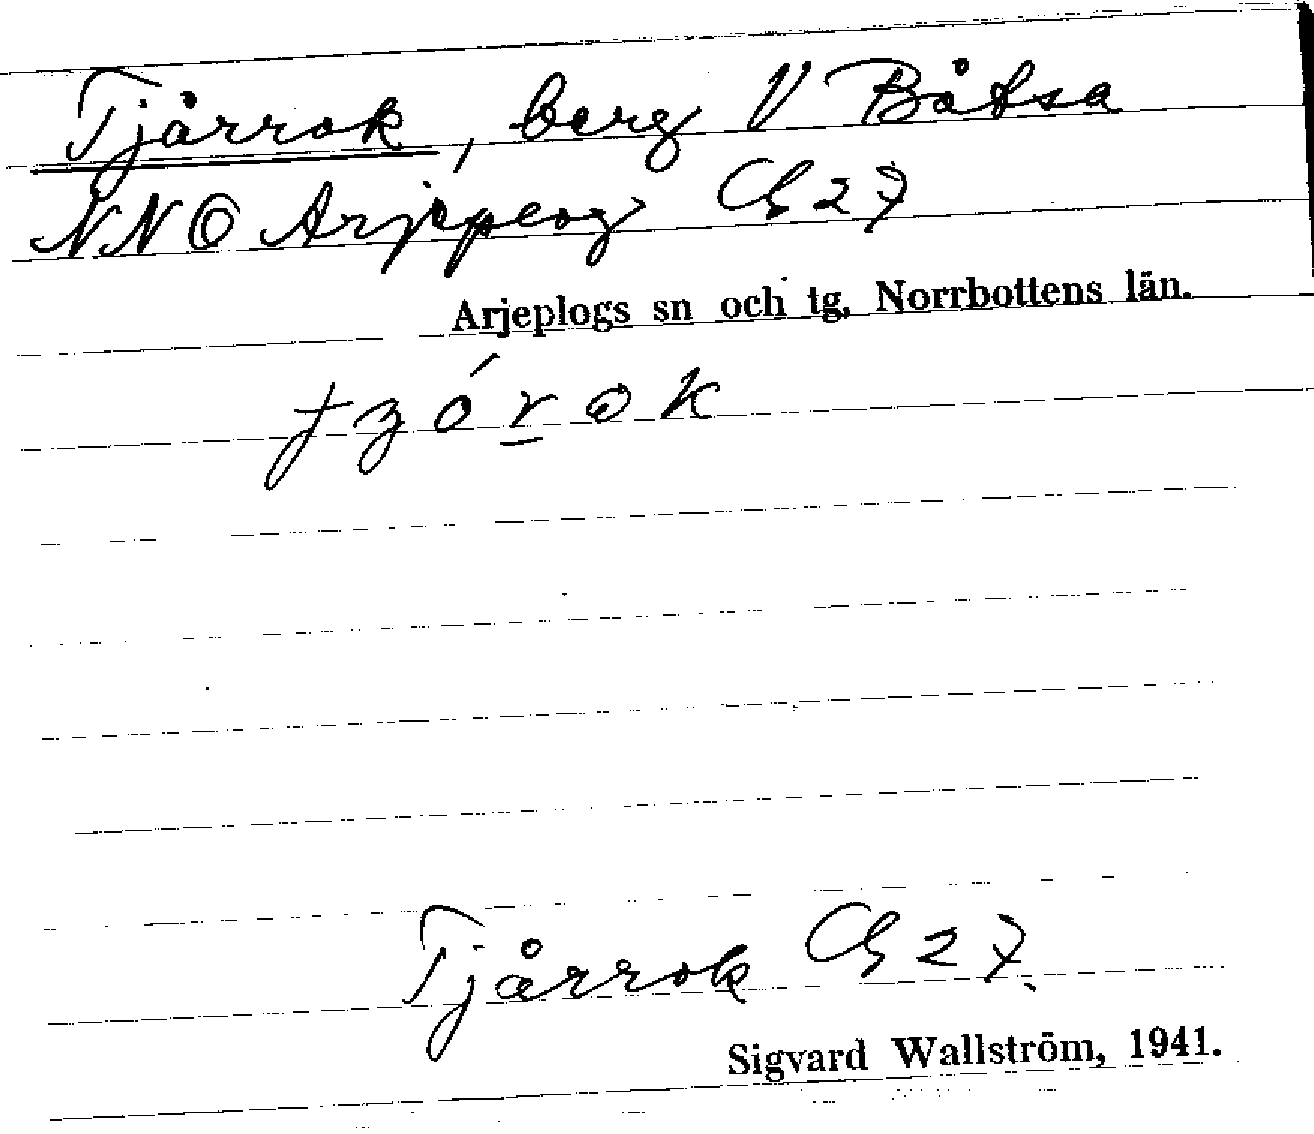 Tjårrok, berg V Båtsa
NNO Arjeplog Gh 27
Arjeplogs sn och tg, Norrbottens län.
tʒórok
Tjårrok Gh 27.
Sigvard Wallström, 1941.